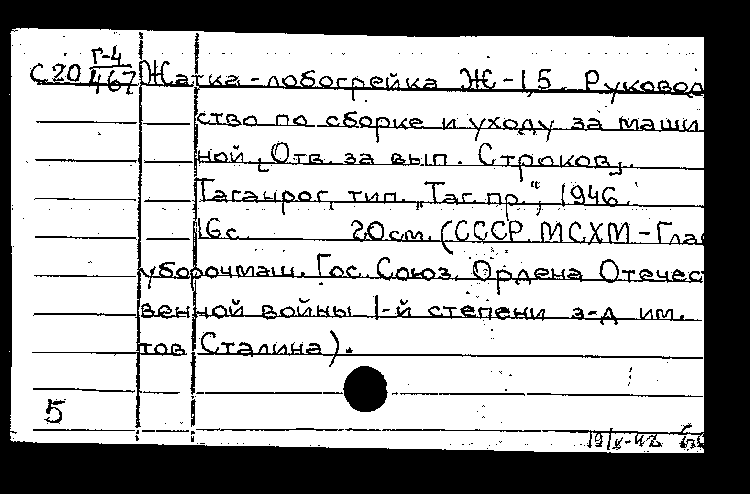 Г-4
С20 467 Жатка-лобогрейка Ж-1,5. Руковод
ство по сборке и уходу за маши
ной [Отв. за вып. Строков].
Таганрог, тип. „Таг. пр.", 1946.
16с. 20см. (СССР. МСХМ-Гла
уборочмаш. Гос. Союз. Ордена Отечес
венной войны 1-й степени з-д им.
тов Сталина).
5